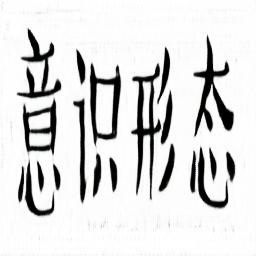 意识形态